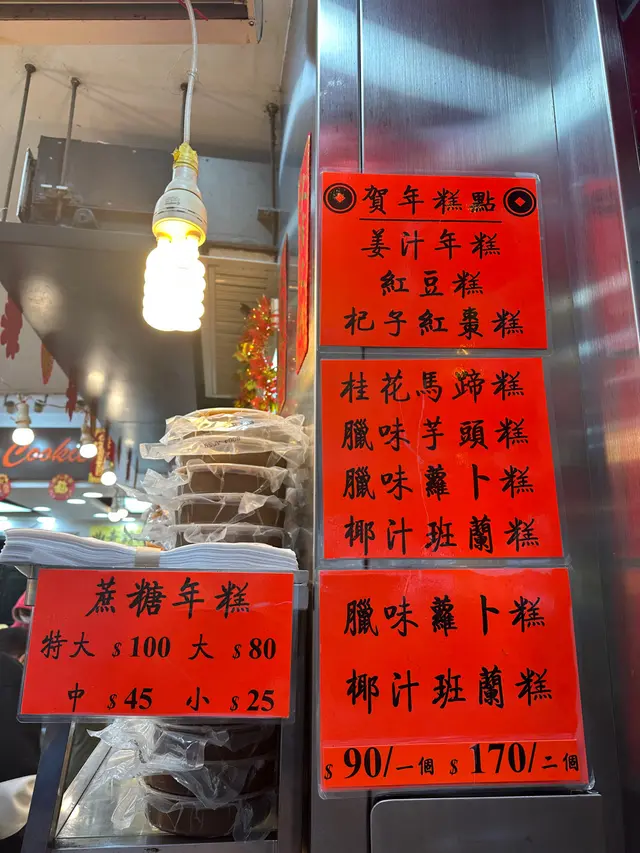 賀年糕點
姜汁年糕
紅豆糕
杞子紅棗糕
桂花馬蹄糕
臘味芋頭糕
臘味蘿卜糕
椰汁班蘭糕
臘味蘿卜糕
椰汁班蘭糕
$90/一個 $170/二個
蔗糖年糕
特大 $100 大 $80
中 $45 小 $25
Cookie